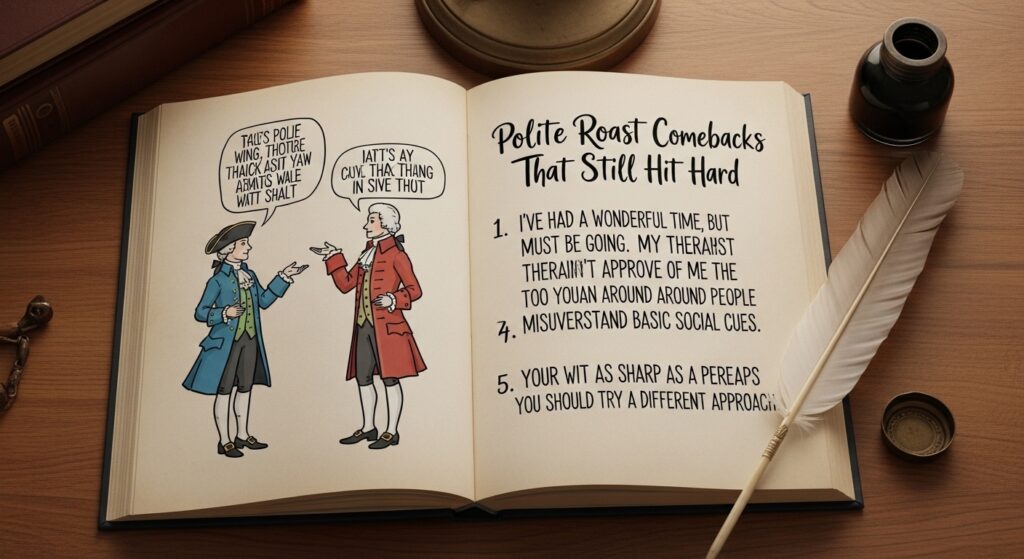 TALE'S POLIE
WING, THOTRE
THAICK ASIT YAW
ABMTS WALE
WATT SHALT
IATT'S AY
CUVL THAX THANG
IN SIVE THUT
Polite Roast Comebacks
That Still Hit Hard
1. I'VE HAD A WONDERFUL TIME, BUT
MUST BE GOING. MY THERAHST
APPROVE OF ME THE
TOO YOUAN AROUND AROUND PEOPLE
4. MISUVERSTAND BASIC SOCIAL CUES.
5. YOUR WIT AS SHARP AS A PEREAPS
YOU SHOULD TRY A DIFFERENT APPROACH